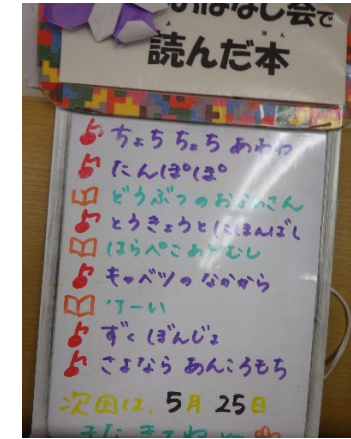 おはなし会で
読んだ本
ちょちちょち あわわ
たんぽぽ
どうぶつのおかあさん
とうきょうとにほんばし
はらぺこあおむし
キャベツのなかから
すーい
ずくぼんじょ
さよなら あんころもち
次回は、5月25日
またきてね